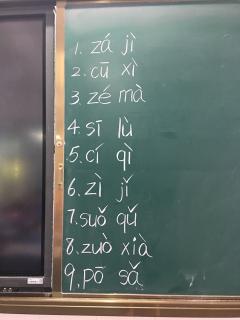 1. zá jì
2. cū xì
3. zé mà
4. sī lù
5. cí qì
6. zì jǐ
7. suǒ qǔ
8. zuò xià
9. pō sǎ